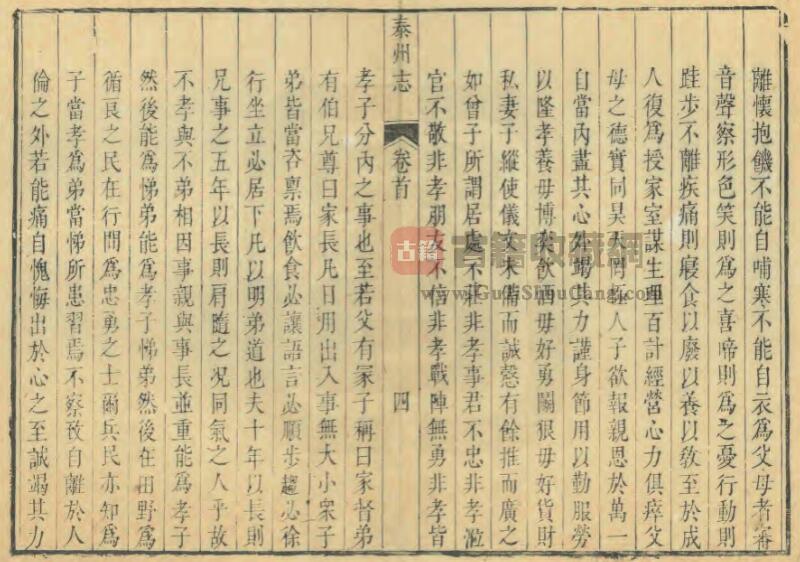 離懷抱饑不能自哺寒不能自衣為父母者審
音聲察形色笑則為之喜啼則為之憂行動則
跬步不離疾痛則寢食以廢以養以敎至於成
人復為授家室謀生理百計經營心力俱瘁父
母之德實同昊天罔極人子欲報親恩於萬一
自當內盡其心外竭其力謹身節用以勤服勞
以隆孝養毋博奕飲酒毋好勇鬬狠毋好貨財
私妻子縱使儀文未備而誠慤有餘推而廣之
如曾子所謂居處不莊非孝事君不忠非孝涖
官不敬非孝朋友不信非孝戰陣無勇非孝皆
泰州志
卷首
四
孝子分內之事也至若父有冢子稱曰家督弟
有伯兄尊曰家長凡日用出入事無大小衆子
弟皆當咨稟焉飲食必讓語言必順步趨必徐
行坐立必居下凡以明弟道也夫十年以長則
兄事之五年以長則肩隨之况同氣之人乎故
不孝與不弟相因事親與事長並重能為孝子
然後能為悌弟能為孝子悌弟然後在田野為
循良之民在行間為忠勇之士爾兵民亦知為
子當孝為弟當悌所患習焉不察致自離於人
倫之外若能痛自愧悔出於心之至誠竭其力
古籍
古籍收藏網
www.GuJiShouCang.com